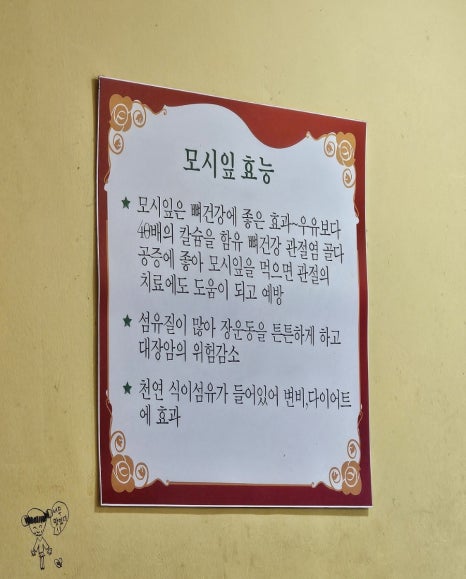 모시잎 효능
★ 모시잎은 뼈건강에 좋은 효과~우유보다
40배의 칼슘을 함유 뼈건강 관절염 골다
공증에 좋아 모시잎을 먹으면 관절의
치료에도 도움이 되고 예방
★ 섬유질이 많아 장운동을 튼튼하게 하고
대장암의 위험감소
★ 천연 식이섬유가 들어있어 변비,다이어트
에 효과